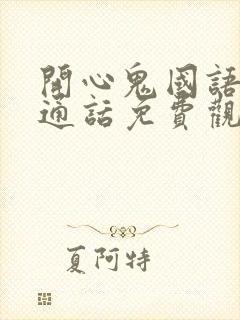 開心鬼國語
通話免費觀
夏阿特